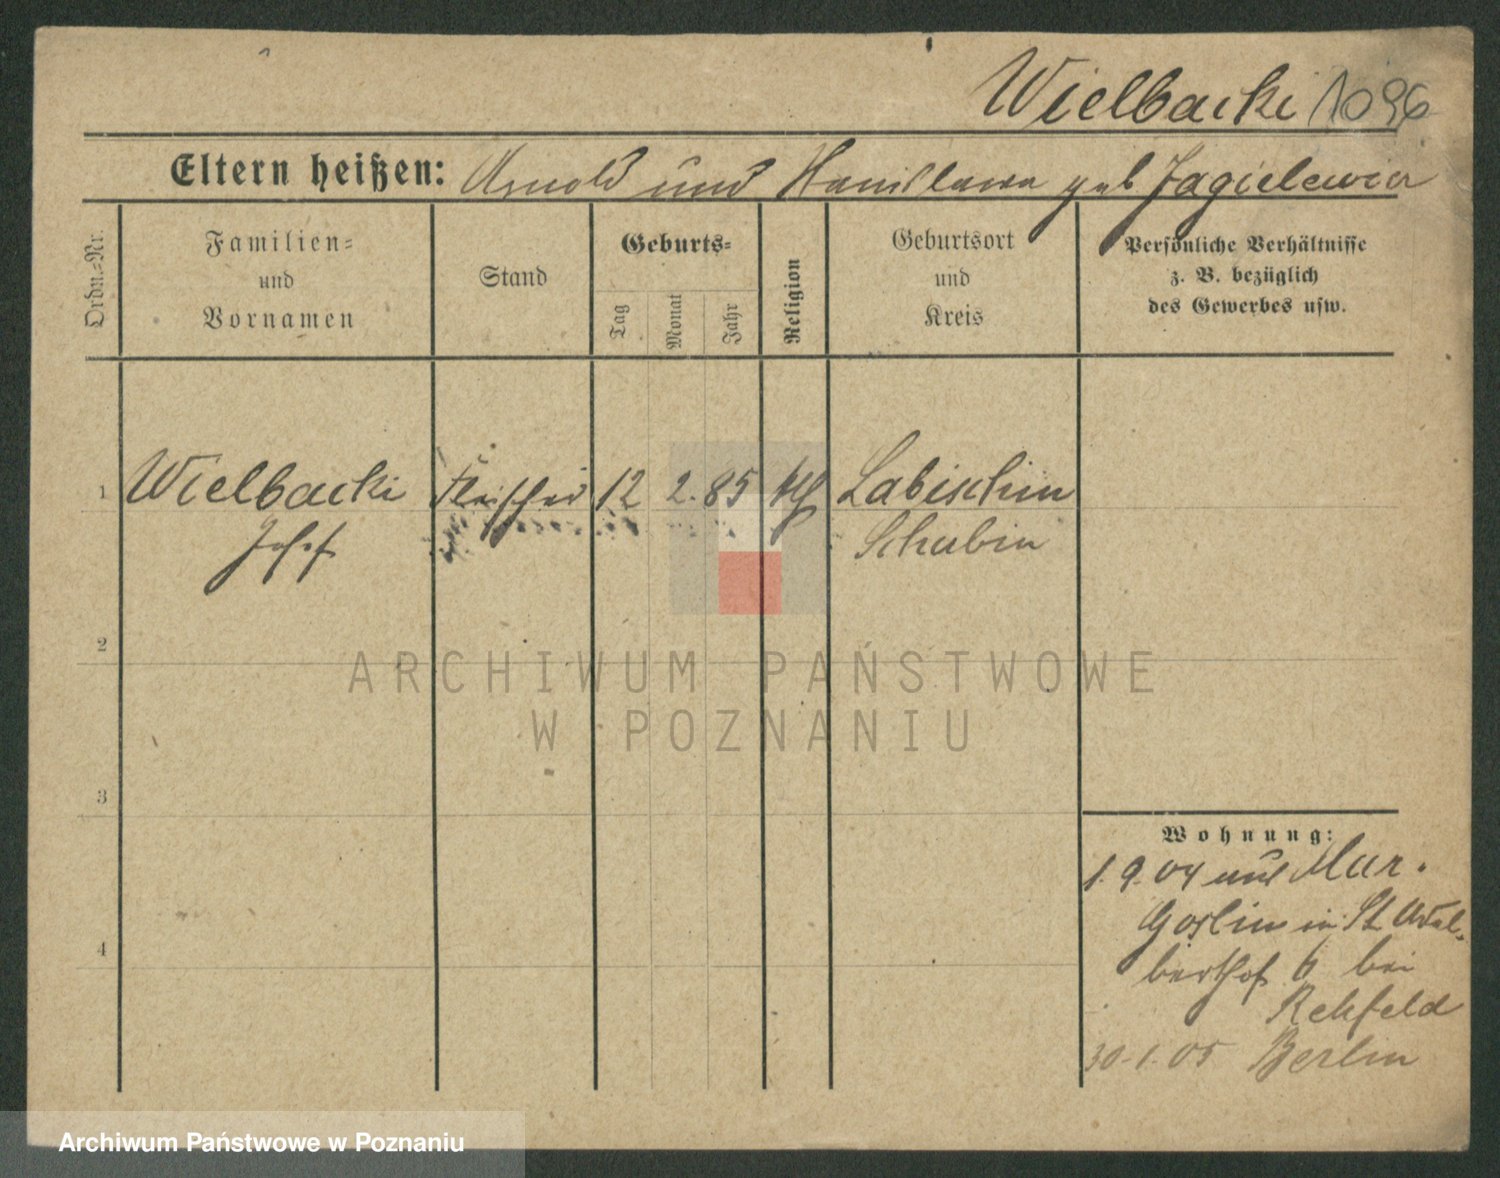 Wielbacki 1096
Eltern heißen: Arnold und Stanislawa geb Jagielewicz
Ordn.-Nr.
Familien-
und
Vornamen
Stand
Geburts-
Tag
Monat
Jahr
Religion
Geburtsort
und
Kreis
Persönliche Verhältnisse
z. B. bezüglich
des Gewerbes usw.
1 Wielbacki Fleischer 12 2. 85 kth Labischin
Josef Schubin
2
3
4
Wohnung:
1. 9. 04 aus Mur.
Goslin in St Adal-
berthof 6 bei
Rehfeld
30. 1. 05 Berlin
ARCHIWUM PAŃSTWOWE
W POZNANIU
Archiwum Państwowe w Poznaniu